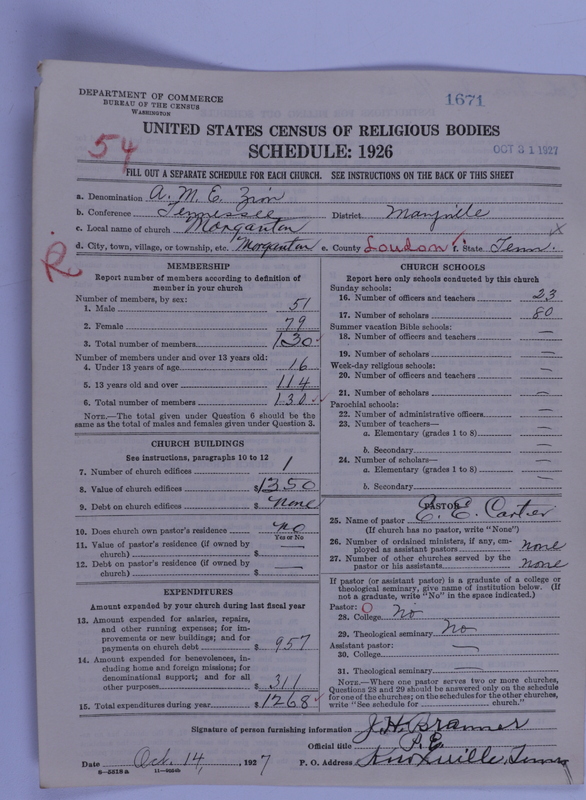 DEPARTMENT OF COMMERCE
BUREAU OF THE CENSUS
WASHINGTON
1671
UNITED STATES CENSUS OF RELIGIOUS BODIES
54
SCHEDULE: 1926
OCT 21 1927
FILL OUT A SEPARATE SCHEDULE FOR EACH CHURCH. SEE INSTRUCTIONS ON THE BACK OF THIS SHEET
a. Denomination A. M. E. Zion
b. Conference Tennessee District Maryville
c. Local name of church Morganton
d. City, town, village, or township, etc. Morganton e. County Loudon f. State Tenn.
R
MEMBERSHIP
Report number of members according to definition of
member in your church
Number of members, by sex:
1. Male 51
2. Female 79
3. Total number of members 130
Number of members under and over 13 years old:
4. Under 13 years of age 16
5. 13 years old and over 114
6. Total number of members 130
NOTE.—The total given under Question 6 should be the
same as the total of males and females given under Question 3.
CHURCH BUILDINGS
See instructions, paragraphs 10 to 12
7. Number of church edifices 1
8. Value of church edifices $1350
9. Debt on church edifices $none
10. Does church own pastor's residence no
Yes or No
11. Value of pastor's residence (if owned by
church) $ —
12. Debt on pastor's residence (if owned by
church) $ —
EXPENDITURES
Amount expended by your church during last fiscal year
13. Amount expended for salaries, repairs,
and other running expenses; for im-
provements or new buildings; and for
payments on church debt $957
14. Amount expended for benevolences, in-
cluding home and foreign missions; for
denominational support; and for all
other purposes $311
15. Total expenditures during year $1268
CHURCH SCHOOLS
Report here only schools conducted by this church
Sunday schools:
16. Number of officers and teachers 23
17. Number of scholars 80
Summer vacation Bible schools:
18. Number of officers and teachers —
19. Number of scholars —
Week-day religious schools:
20. Number of officers and teachers —
21. Number of scholars —
Parochial schools:
22. Number of administrative officers —
23. Number of teachers—
a. Elementary (grades 1 to 8) —
b. Secondary —
24. Number of scholars—
a. Elementary (grades 1 to 8) —
b. Secondary —
PASTOR
25. Name of pastor E. E. Cartier
(If church has no pastor, write "None")
26. Number of ordained ministers, if any, em-
ployed as assistant pastors none
27. Number of other churches served by the
pastor or his assistants none
If pastor (or assistant pastor) is a graduate of a college or
theological seminary, give name of institution below. (If
not a graduate, write "No" in the space indicated.)
Pastor:
28. College No
29. Theological seminary No
Assistant pastor:
30. College —
31. Theological seminary —
NOTE.—Where one pastor serves two or more churches,
Questions 28 and 29 should be answered only on the schedule
for one of the churches; on the schedules for the other churches,
write "See schedule for church."
Signature of person furnishing information J. H. Branner
Official title P. E.
Date Oct. 14, 1927 P. O. Address Knoxville, Tenn
8-5518a 11-9554b